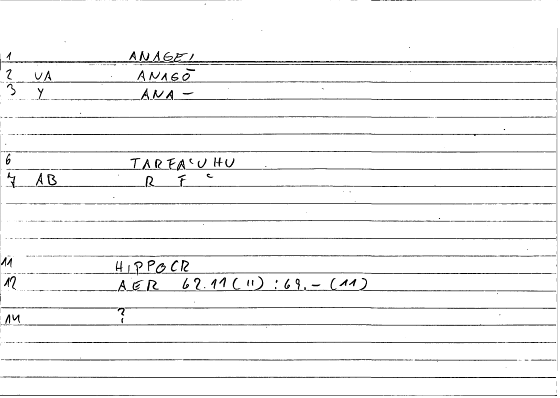 1 ANAGEI
2 VA ANAGŌ
3 Y ANA –
6 TARFAʿU HU
7 AB R F ʿ
11 HIPPOCR
12 AER 62.11 (11) : 69. – (11)
14 ?